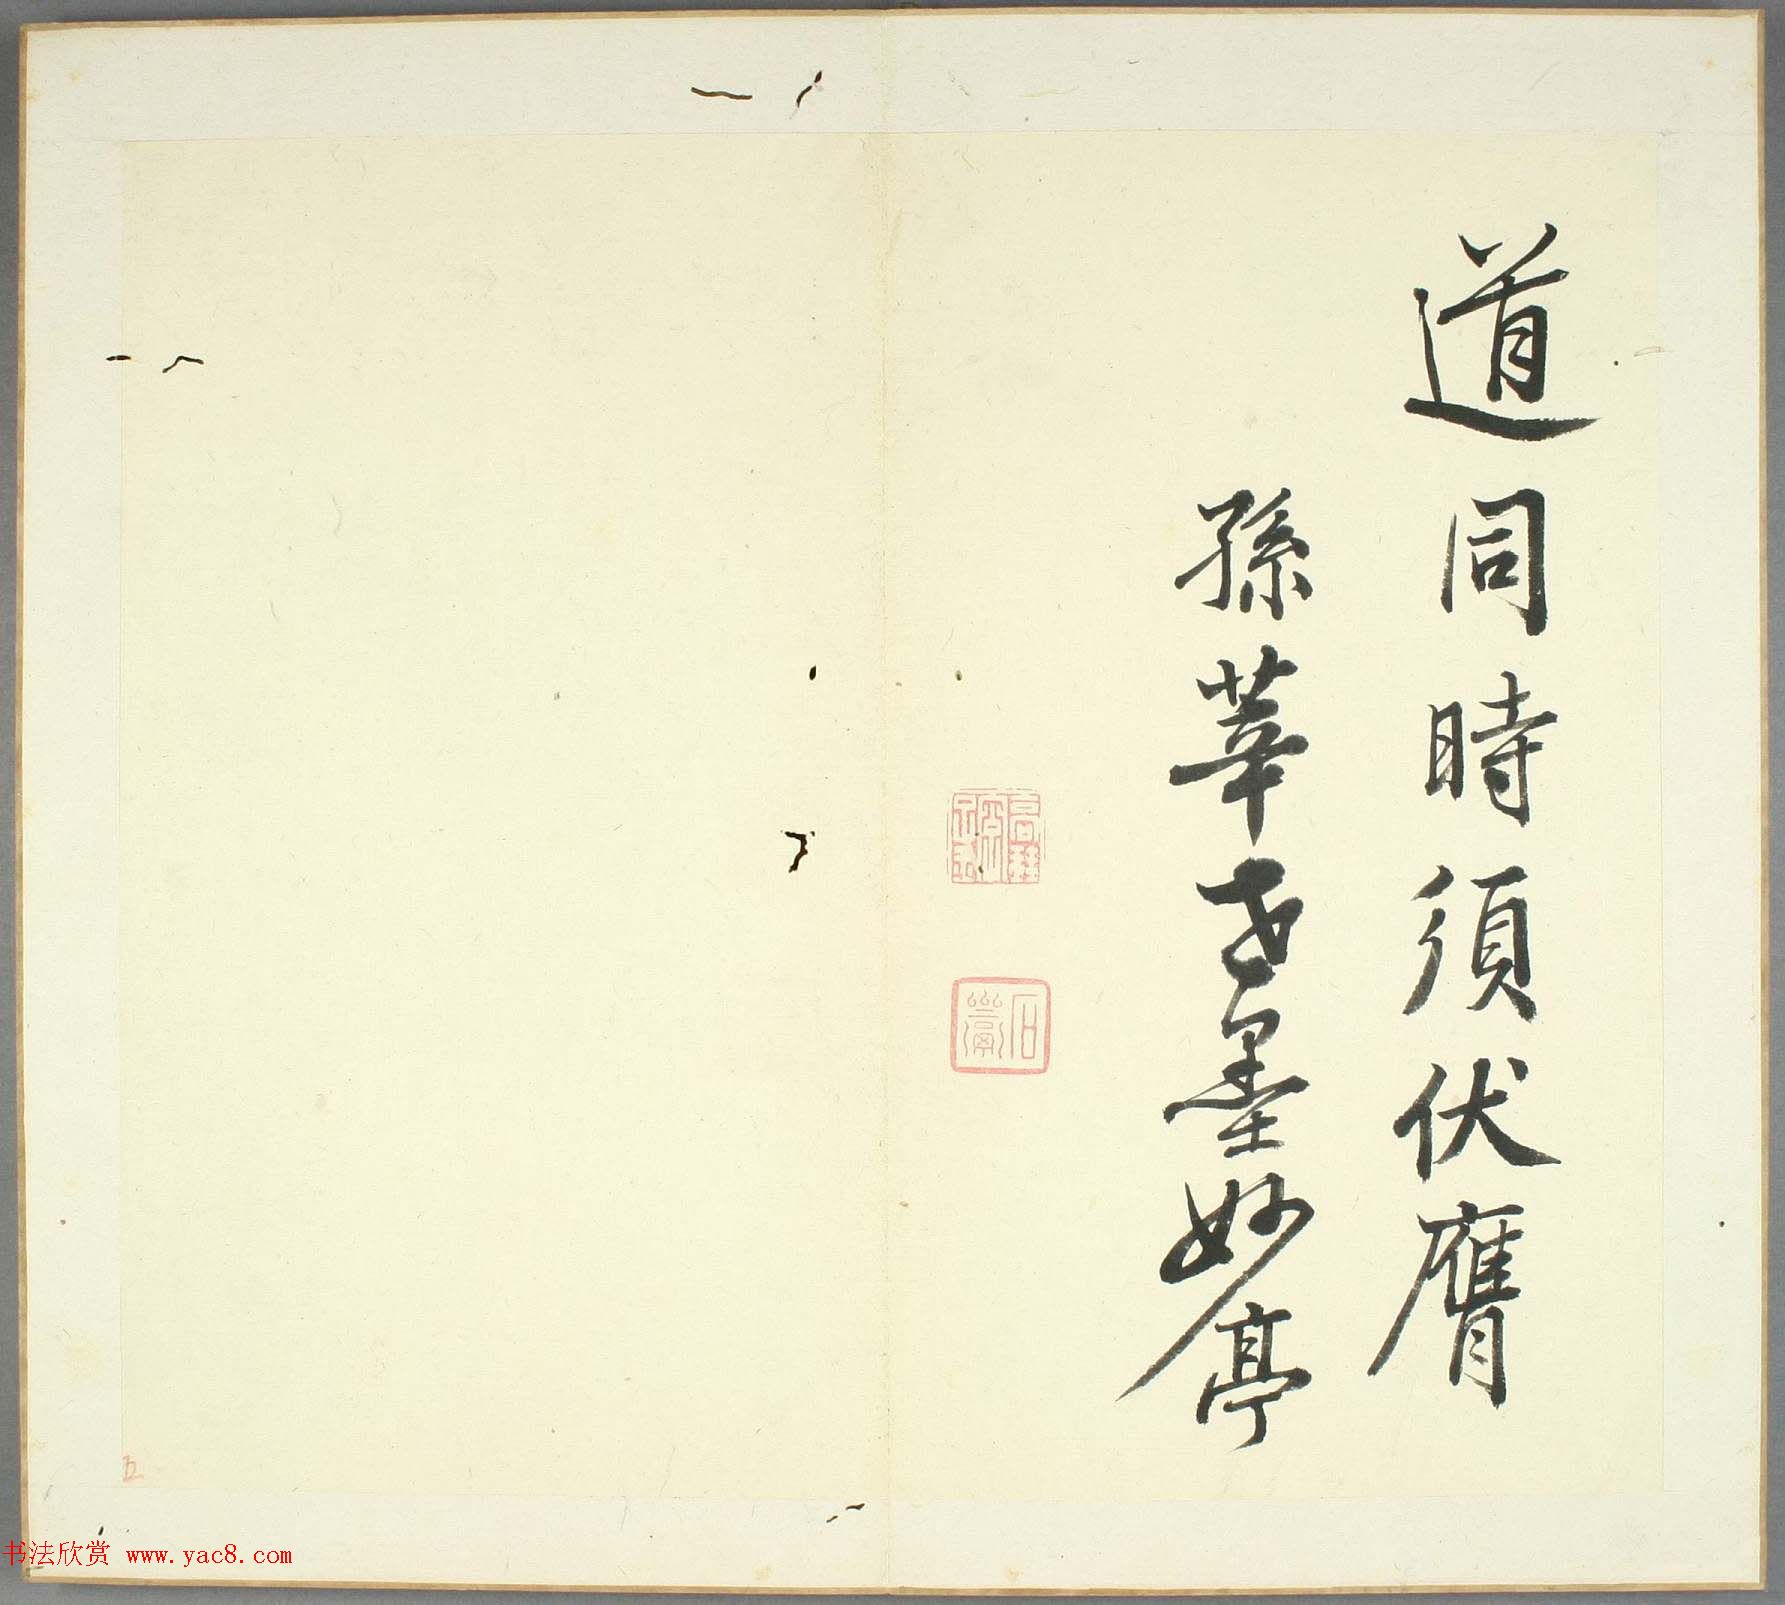 道同時須伏膺
孫莘老墨妙亭
石庵
五
书法欣赏 www.yac8.com